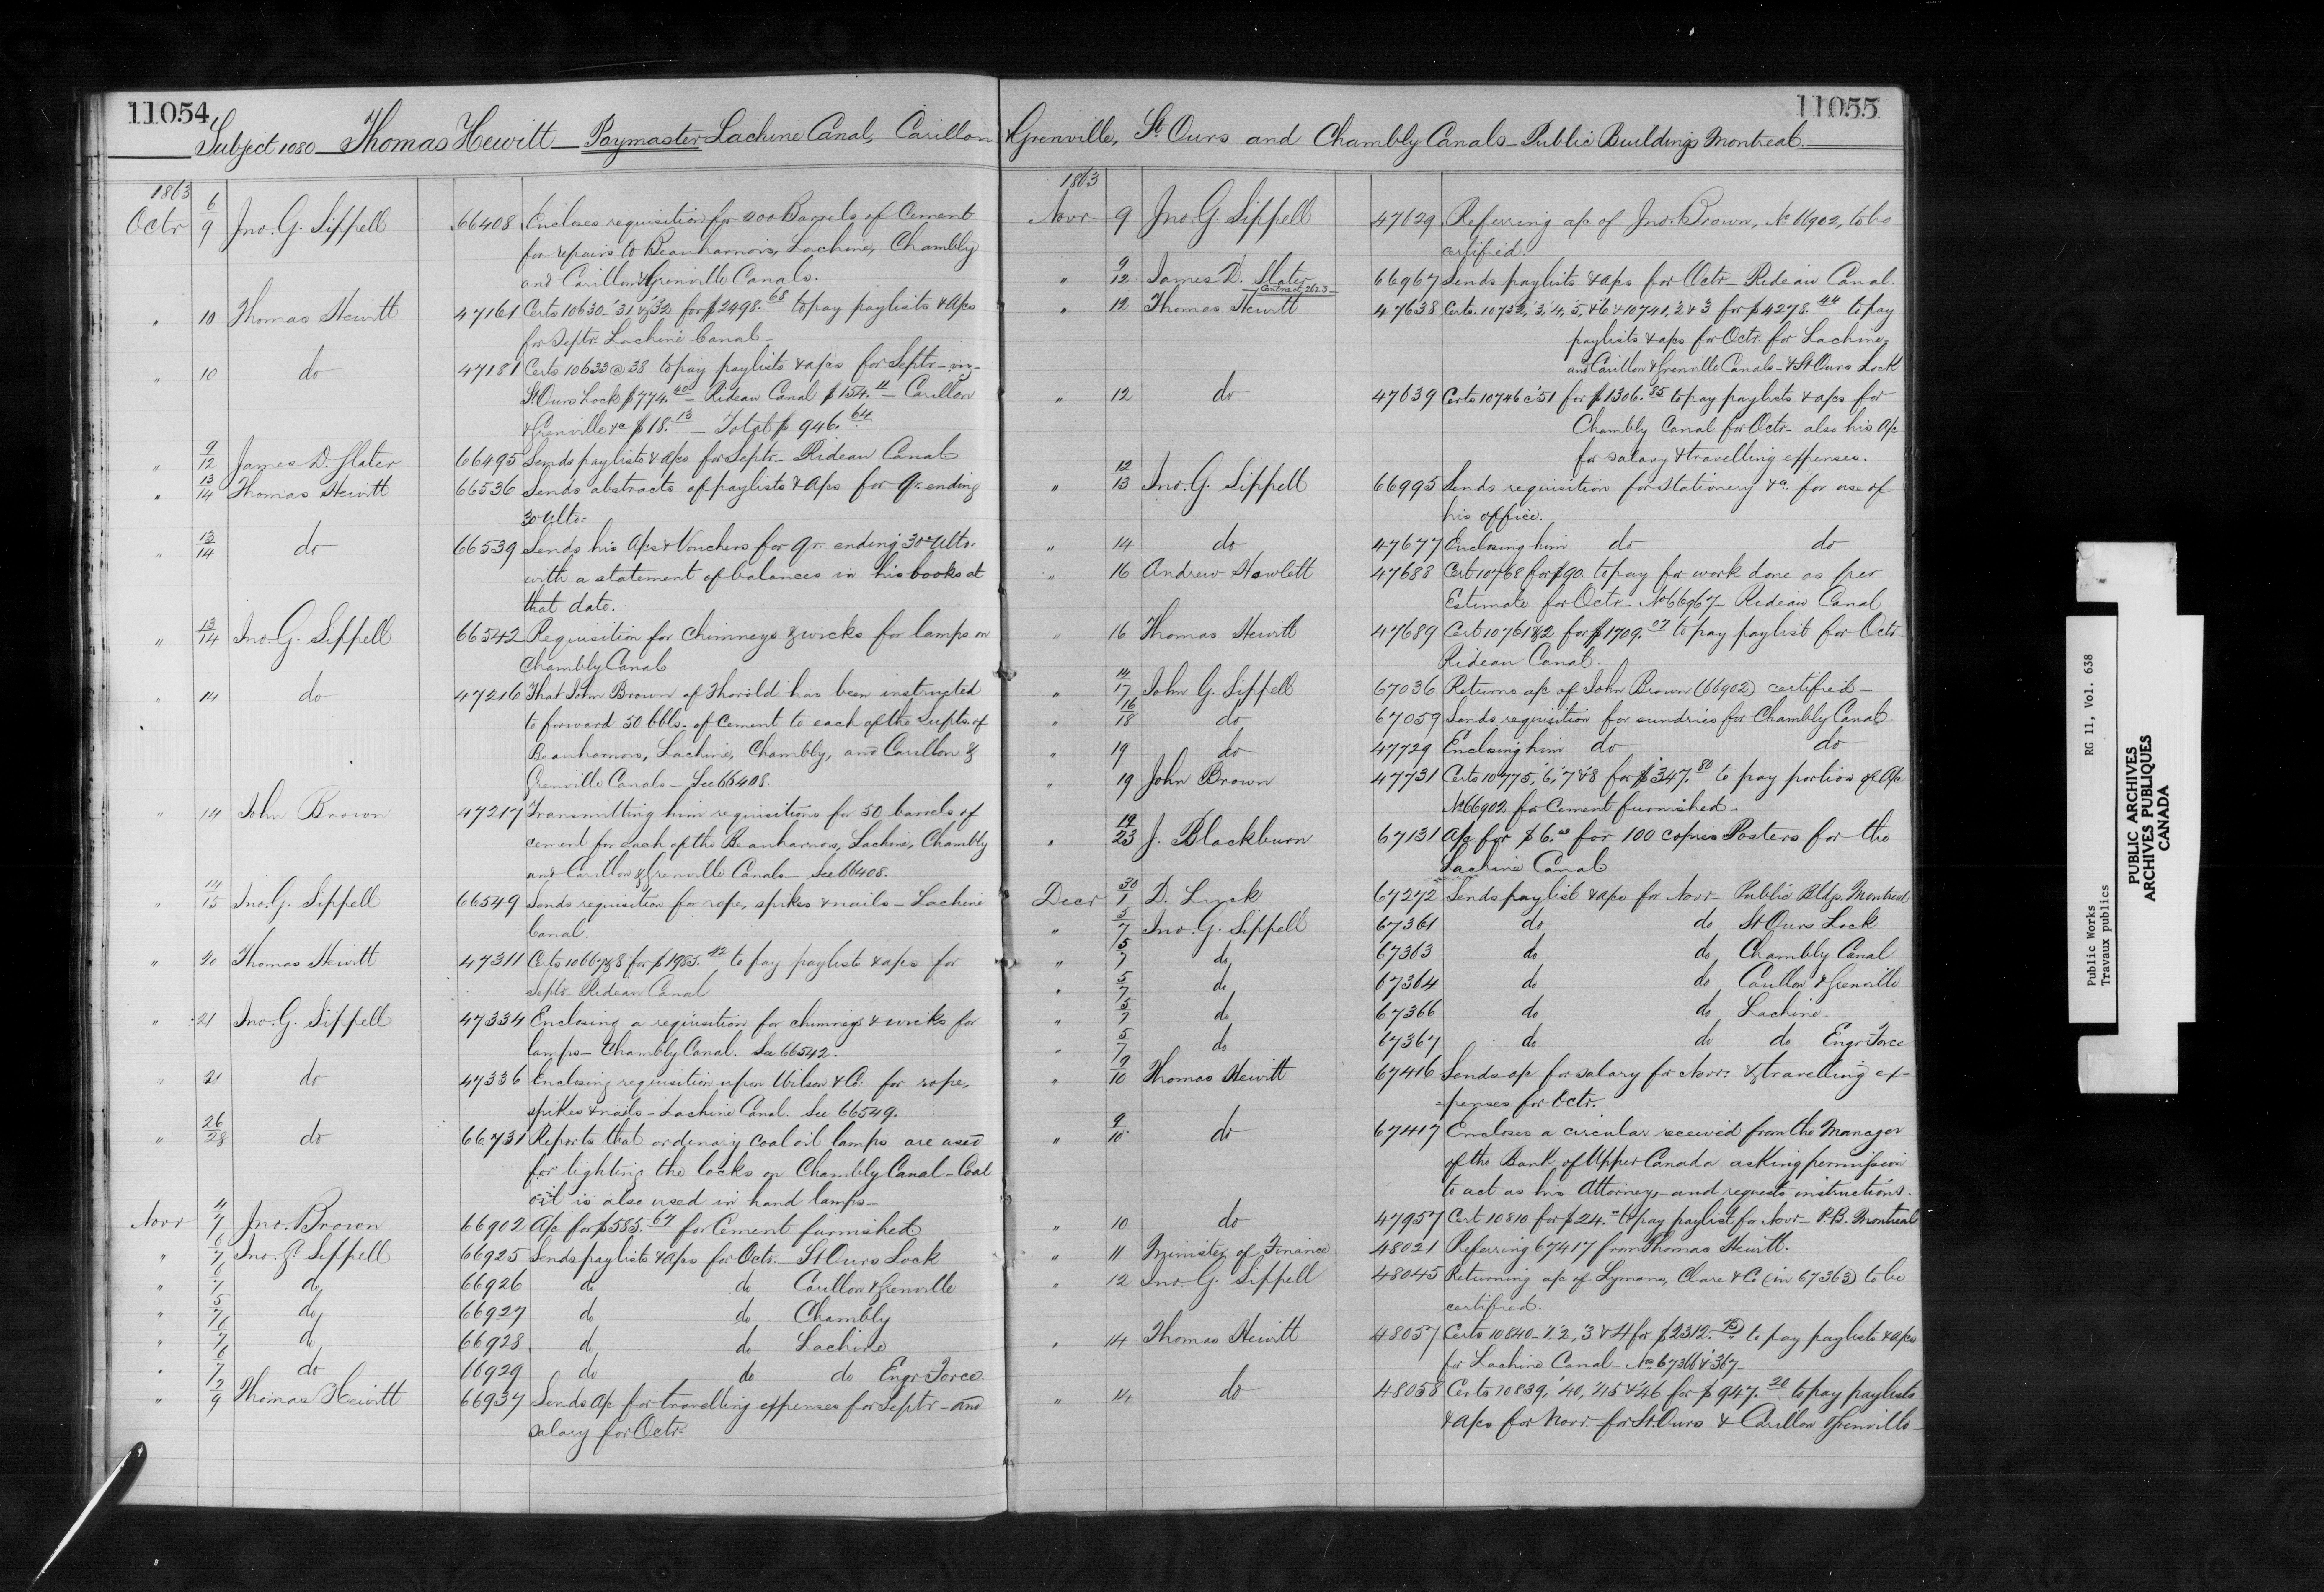 11054
Subject 1080 — Thomas Hewitt — Paymaster Lachine Canal, Carillon
1863
Octr 6/9 Jno. G. Sippell 66408 Encloses requisition for 200 Barrels of Cement
for repairs to Beauharnois, Lachine, Chambly
and Carillon & Grenville Canals.
" 10 Thomas Hewitt 47161 Certs 10630-'31 & '32 for $2498.68 to pay paylists & a/cs
for Septr. Lachine Canal -
" 10 do 47181 Certs 10633 @ 38 to pay paylists & a/cs for Septr - viz -
St Ours Lock $774.40 - Rideau Canal $154.11 - Carillon
& Grenville &c $18.13 - Total $946.64
" 9/12 James D. Slater 66495 Sends paylists & a/cs for Septr - Rideau Canal
" 13/14 Thomas Hewitt 66536 Sends abstracts of paylists & a/cs for qr. ending
30 ulto.
" 13/14 do 66539 Sends his a/cs & Vouchers for qr. ending 30th ulto.
with a statement of balances in his books at
that date.
" 13/14 Jno. G. Sippell 66542 Requisition for chimneys & wicks for lamps on
Chambly Canal
" 14 do 47216 That John Brown of Thorold has been instructed
to forward 50 bbls. of Cement to each of the Supts. of
Beauharnois, Lachine, Chambly, and Carillon &
Grenville Canals - See 66408.
" 14 John Brown 47217 Transmitting him requisitions for 50 barrels of
cement for each of the Beauharnois, Lachine, Chambly
and Carillon & Grenville Canals - See 66408.
" 14/15 Jno. G. Sippell 66549 Sends requisition for rope, spikes & nails - Lachine
Canal.
" 20 Thomas Hewitt 47311 Certs 10667 & 8 for $1955.42 to pay paylists & a/cs for
Septr Rideau Canal
" 21 Jno. G. Sippell 47334 Enclosing a requisition for chimneys & wicks for
lamps - Chambly Canal. See 66542.
" 21 do 47336 Enclosing requisition upon Wilson & Co. for rope,
spikes & nails - Lachine Canal. See 66549.
" 26/28 do 66731 Reports that ordenary coal oil lamps are used
for lighting the locks on Chambly Canal - Coal
oil is also used in hand lamps -
Novr 4/7 Jno. Brown 66902 A/c for $585.67 for Cement furnished
" 6/7 Jno. G. Sippell 66925 Sends paylists & a/cs for Octr. St Ours Lock
" 6/7 do 66926 do do Carillon & Grenville
" 5/7 do 66927 do do Chambly
" 6/7 do 66928 do do Lachine
" 6/7 do 66929 do do do Engr Force.
" 7/9 Thomas Hewitt 66937 Sends a/c for travelling expenses for Septr - and
salary for Octr
11055
& Grenville, St. Ours and Chambly Canals - Public Buildings Montreal.
1863
Novr 9 Jno. G. Sippell 47629 Referring a/c of Jno. Brown, No 66902, to be
certified.
" 9/12 James D. Slater 66967 Sends paylists & a/cs for Octr - Rideau Canal.
Contract 2623
" 12 Thomas Hewitt 47638 Certs. 10732, '3, '4, '5, & '6 & 10741, '2 & '3 for $4278.44 to pay
paylists & a/cs for Octr. for Lachine,
and Carillon & Grenville Canals - & St Ours Lock
" 12 do 47639 Certs 10746 @ '51 for $1306.85 to pay paylists & a/cs for
Chambly Canal for Octr - also his a/c
for salary & travelling expenses.
" 12/13 Jno. G. Sippell 66995 Sends requisition for Stationery &c. for use of
his office.
" 14 do 47677 Enclosing him do do
" 16 Andrew Hewlett 47688 Cert 10768 for $90. to pay for work done as per
Estimate for Octr - No 66967 - Rideau Canal
" 16 Thomas Hewitt 47689 Cert 10761 & 2 for $1709.07 to pay paylist for Octr
Rideau Canal.
" 14/17 John G. Sippell 67036 Returns a/c of John Brown (66902) certified -
" 16/18 do 67059 Sends requisition for sundries for Chambly Canal.
" 19 do 47729 Enclosing him do do
" 19 John Brown 47731 Certs 10775, '6, '7 & 8 for $347.80 to pay portion of a/c
No 66902 for Cement furnished -
" 19/23 J. Blackburn 67131 A/c for $6.00 for 100 copies Posters for the
Lachine Canal
Decr 30/1 D. Lynck 67272 Sends paylist & a/cs for Novr - Public Bldgs. Montreal
" 5/7 Jno. G. Sippell 67361 do do St Ours Lock
" 5/7 do 67363 do do Chambly Canal
" 5/7 do 67364 do do Carillon & Grenville
" 5/7 do 67366 do do Lachine.
" 5/7 do 67367 do do do Engr Force
" 9/10 Thomas Hewitt 67416 Sends a/c for salary for Novr: & travelling ex-
-penses for Octr.
" 9/10 do 67417 Encloses a circular received from the Manager
of the Bank of Upper Canada asking permission
to act as his Attorney, - and requests instructions.
" 10 do 47957 Cert 10810 for $24.00 to pay paylist for Novr - P.B. Montreal
" 11 Minister of Finance 48021 Referring 67417 from Thomas Hewitt.
" 12 Jno. G. Sippell 48045 Returning a/c of Lymans, Clare & Co (in 67363) to be
certified.
" 14 Thomas Hewitt 48057 Certs 10840-'1. '2, '3 & 44 for $2312.75 to pay paylists & a/cs
for Lachine Canal - Nos 67366 & '367 -
" 14 do 48058 Certs 10839, '40, '45 & '46 for $947.20 to pay paylists
& a/cs for Novr - for St. Ours & Carillon & Grenville -
Public Works RG 11, Vol. 638
Travaux publics
PUBLIC ARCHIVES
ARCHIVES PUBLIQUES
CANADA